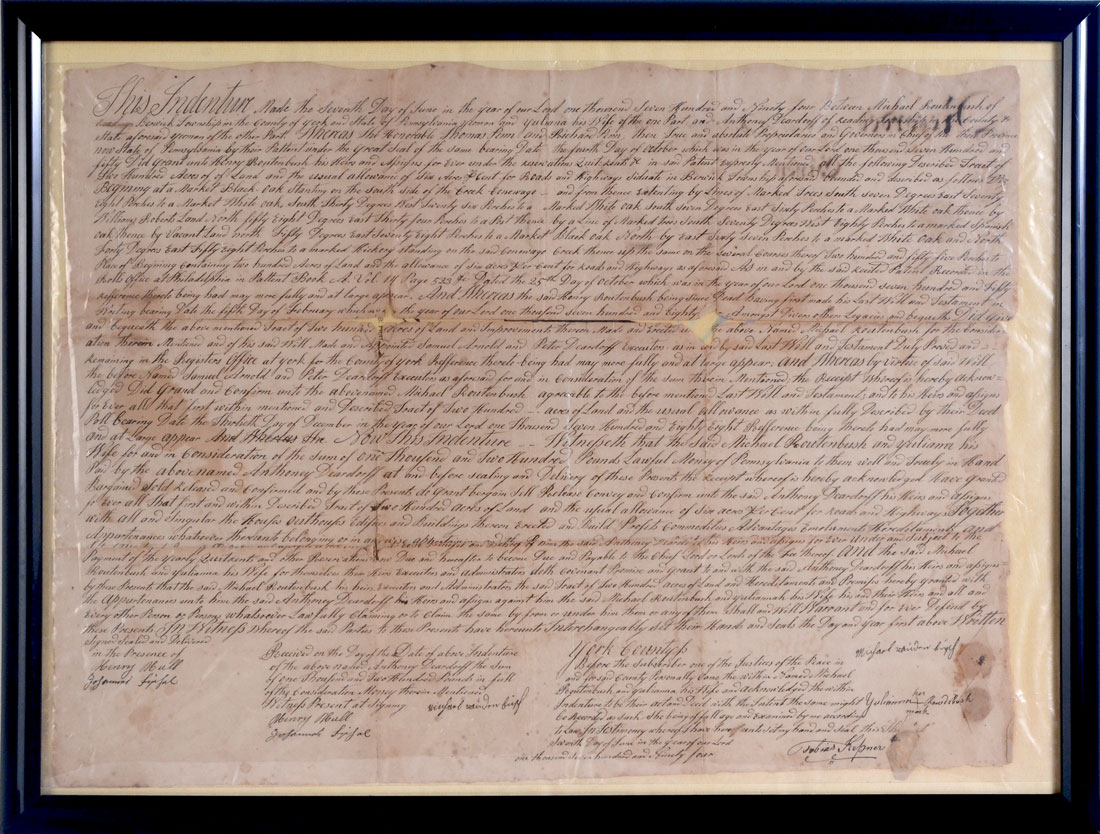 This Indenture Made the Seventh Day of June in the year of our Lord one thousand Seven Hundred and Ninety four Between Michael Roudenbush of
Berwick Township in the County of york and State of Pennsylvania yeoman and Yuliana his Wife of the one Part and Anthony Deardoff of Reading Township County &
State aforesaid yeoman of the other Part. Whereas The Honorable Thomas Penn and Richard Penn then True and absolute Proprietaries and Governors in Chief of the Province
now State of Pennsylvania by their Pattent under the Great Seal of the same bearing Date the fourth Day of October which was in the year of our Lord one thousand Seven Hundred and
fifty Did Grant unto Henry Routenbush his Heirs and Assigns for Ever under the Quit Rents & in said Patent expresly Mentioned all the following Described Tract of
Two Hundred Acres of Land and the usual allowance of Six Acres P Cent for Roads and Highways Situate in Berwick Township aforesaid bounded and described as follows
Begining at a Market Black oak Standing on the South side of the Creek Conewago and from thence Extenting by Lines of Marked Trees South Seven Degrees East Seventy
Eight Perches to a Market White oak South Thirty Degrees West Seventy Six Perches to a Marked White oak South Seven Degrees East Sixty Perches to a Marked White oak thence by
Williams Roberts Land North fifty Eight Degrees East Thirty four Perches to a Post Thence by a Line of Marked trees South Seventy Degrees West Eighty Perches to a marked Spanish
oak thence by Vacant Land North Fifty Degrees East Seventy Eight Perches to a Market Black Oak North by East Sixty Seven Perches to a marked White Oak and North
Forty Degrees East Fifty eight Perches to a marked Hickory standing on the said Conewago Creek thence up the Same on the Several Courses thereof Two Hundred and fifty five Perches to
Place of Begining Containing two hundred Acres of Land and the allowance of Six acres P Cent for Roads and Highways as aforesaid As in and by the said Patent Recorded in the
Rolls Office at Philadelphia in Pattent Book A. Vol. 14 Page 533 Dated the 25th Day of October which was in the year of our Lord one thousand seven hundred and Fifty
Refference thereto being had may more fully and at large appear. And Whereas the said Henry Routenbush being Since Dead having first made his Last Will and Testament in
Writing bearing Date the fifth Day of February which was in the year of our Lord one thousand seven hundred and Eighty Amongst Divers other Legacies and bequeaths Did give
and bequeath the above mentioned Tract of Two hundred Acres of Land and Improvements Therein Made and Erected above Named Michael Routenbush for the Consider
ation therein Mentioned and of his said Will Made and Appointed Samuel Arnold and Peter Deardoff Executors as in and by said Last Will and Testament Duly Proved and
Remaining in the Registers Office at york for the County of york Refference thereto being had may more fully and at large appear, and Whereas by virtue of said Will
the before Named Samuel Arnold and Peter Deardoff Executors as aforesaid for and in Consideration of the Sum therein Mentioned the Receipt Whereof is hereby Acknow-
ledged Did Grand and Confirm unto the abovenamed Michael Routenbush agreable to the before mention'd Last Will and Testament, and to his Heirs and assigns
for Ever all that first within mentioned and Described Tract of Two Hundred acres of Land and the usual allowance as within fully Described by their Deed
Poll bearing Date the Thirtieth Day of December in the year of our Lord one Thousand Seven Hundred and Eighty Eight Refference being Thereto had may more fully
and at Large appear And Whereas the Now This Indenture Witnesseth that the said Michael Routenbush and Yuliana his
Wife for and in Consideration of the Sum of one Thousend and Two Hundred Pounds Lawful Money of Pennsylvania to them well and Truely in Hand
Paid by the abovenamed Anthoney Deardoff at and before sealing and Delivery of these Present the Receipt whereof is hereby acknowledged Have Grant
Bargained Sold Releasd and Confirmed and by these Presents do Grant bargain Sell Release Convey and Confirm unto the said Anthony Deardoff his Heirs and assigns
for Ever all that first and within Described Tract of Two Hundred acres of land and the usual allowance of Six acres P Cent for roads and Highways Together
with all and Singular the Houses outhouses Edifices and Buildings thereon Erected and Build Profits Commodities Advantages Emoluments Heredetaments and
Appurtenances whatsoever thereunto belonging or in anywise appertaining unto the said Anthony Deardoff his Heirs and assigns for ever under and Subject to the
Payment of the yearly Quitrents and other Reservations now Due and hereafter to become Due and Payable to the Chief Lord or Lords of the Fee thereof. And the said Michael
Routenbush and Yulianna his Wife for themselves their Heirs Executors and administrators doth Covenant Promise and grant to and with the said Anthony Deardoff his Heirs and assigns
by these Presents that the said Michael Routenbush his heirs Executors and administrators the said Tract of Two Hundred acres of Land and Heredetaments and Premises hereby granted with
the appurtenances unto him the said Anthony Deardoff his Heirs and assigns against him the said Michael Routenbush and Yuliannah his Wife his and their Heirs and all and
Every other Person or Persons whatsoever Lawfully Claiming or to Claim the same by from or under him them or any of them Shall and Will Warrant and for ever Defend by
these Presents. In Witness Whereof the said Parties to these Presents have hereunto Interchangeably set their Hands and Seals the Day and year first above Written
Signed Sealed and Delivered
in the Presence of
Henry Hull
Johannes
Received on the Day of the Date of above Indenture
of the above named Anthony Deardoff the Sum
of one Thousend and Two Hundred Pounds in full
of the Consideration Money Therein Mentioned
Witness Present at Signing
Henry Hull
Johannes
York County ss
Before the Subscriber one of the Justices of the Peace in
and for said County Personally Came the within Named Michael
Routenbush and yulianna his Wife and acknowledged the within
Indenture to be their act and Deed with the Intent the Same might
be Recorded as Such She being of full age and Examined by me according
to Law In Testimony whereof I have hereunto set my hand and Seal this
Seventh Day of June in the year of our Lord
one thousand Seven hundred and Ninety four
Yulianna her mark
Tobias Kepner